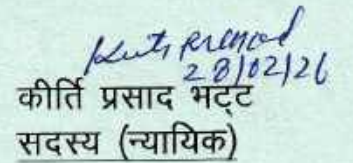 Kirti Prasad
28/02/26
कीर्ति प्रसाद भट्ट
सदस्य (न्यायिक)